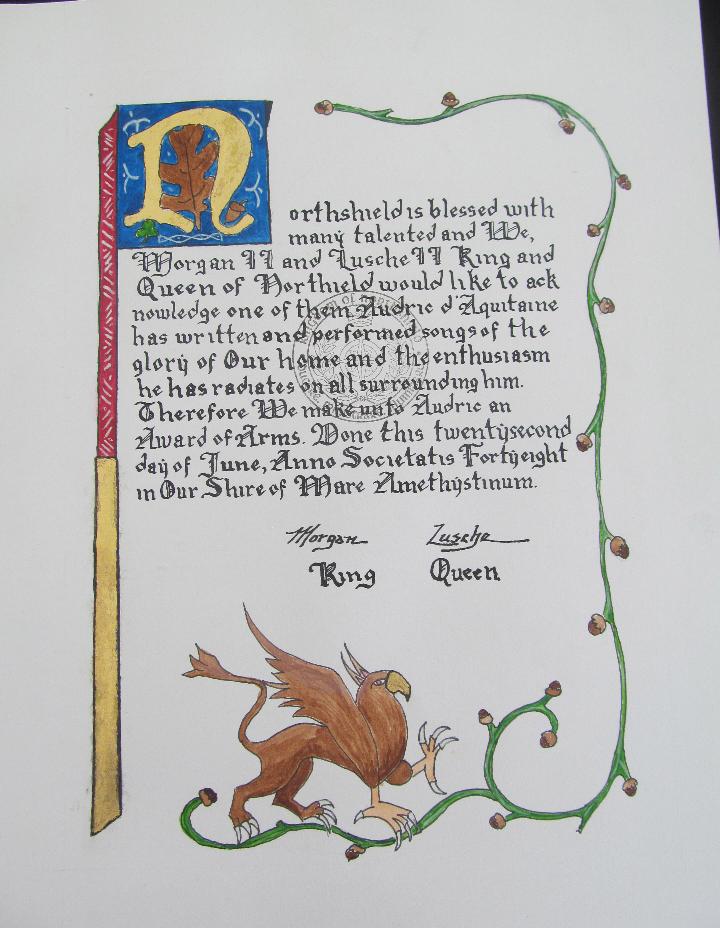 Northshield is blessed with
many talented and We,
Morgan II and Lusche II King and
Queen of Northield would like to ack
nowledge one of them Audric d'Aquitaine
has written and performed songs of the
glory of Our home and the enthusiasm
he has radiates on all surrounding him.
Therefore We make unto Audric an
Award of Arms. Done this twentysecond
day of June, Anno Societatis Fortyeight
in Our Shire of Mare Amethystinum.
Morgan Lusche
King Queen